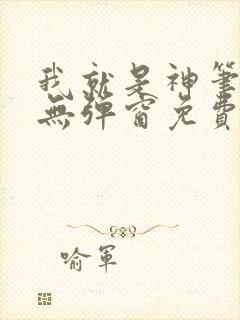 我就是神筆
無彈窗免費
喻軍